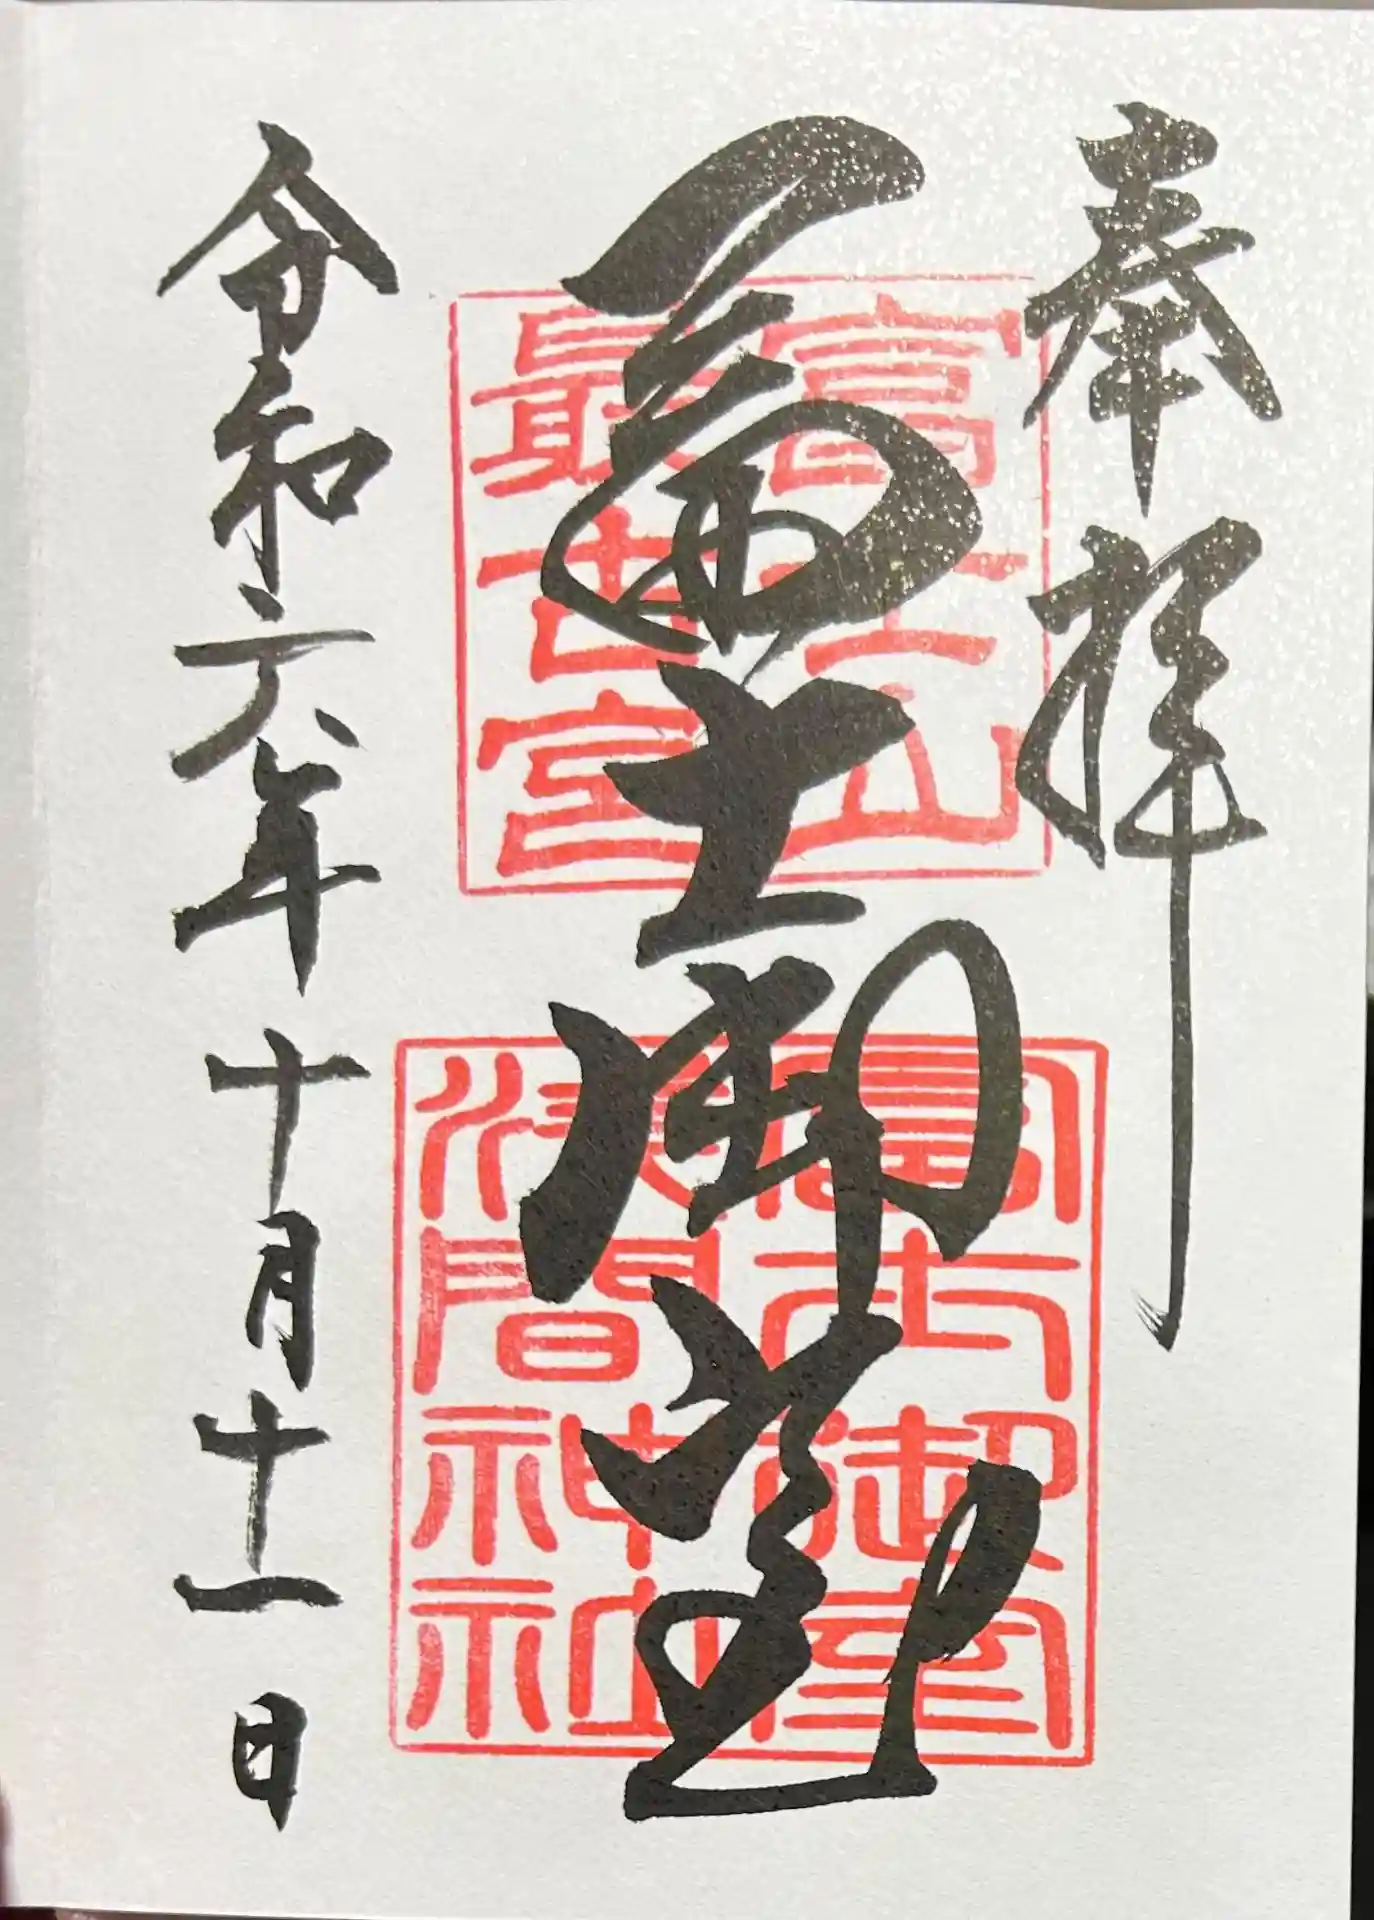 奉拝
富士山
最古宮
富士御室
富士御室
浅間神社
令和六年十月十一日